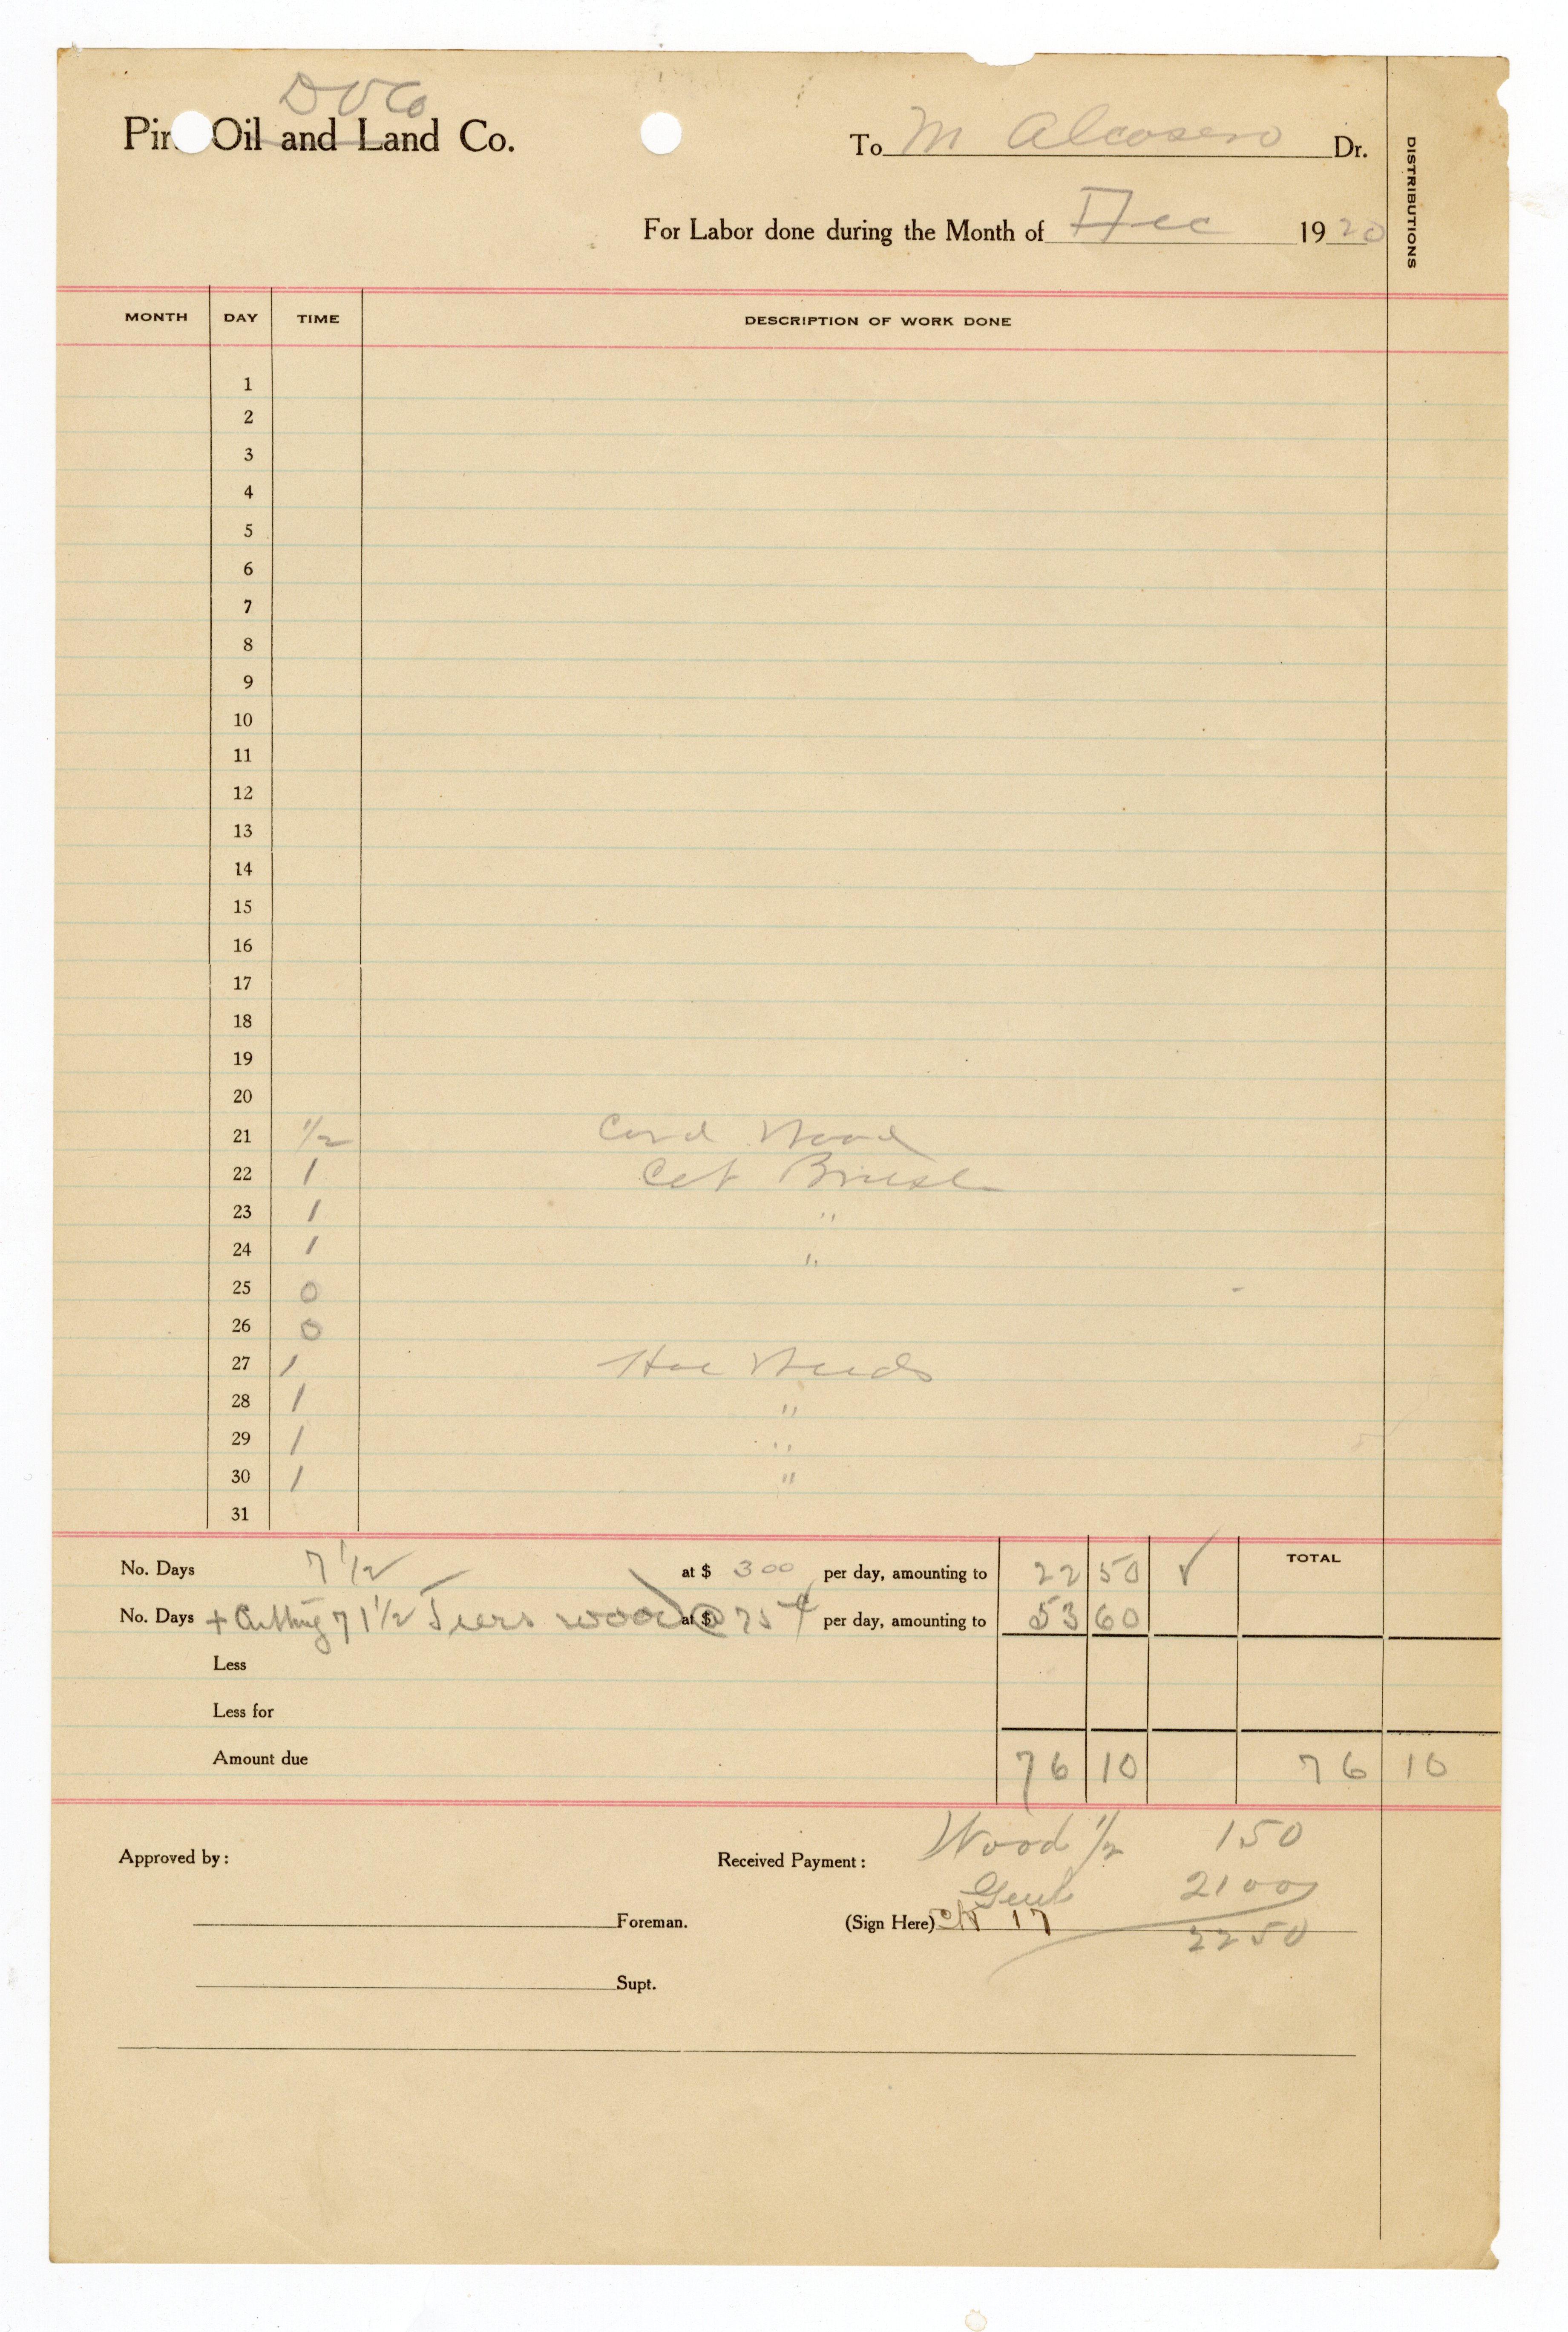 D V Co
Pir Oil and Land Co.
To M Alcosero Dr.
DISTRIBUTIONS
For Labor done during the Month of Dec 1920
MONTH DAY TIME DESCRIPTION OF WORK DONE
1
2
3
4
5
6
7
8
9
10
11
12
13
14
15
16
17
18
19
20
21 1/2 Cord Wood
22 1 Cut Brush
23 1 "
24 1 "
25 0
26 0
27 1 Hoe Weeds
28 1 "
29 1 "
30 1 "
31
No. Days 7 1/2 at $ 3 00 per day, amounting to 22 50 ✓ TOTAL
No. Days + Cutting 71 1/2 Tiers wood at $ @ 75 ¢ per day, amounting to 53 60
Less
Less for
Amount due 76 10 76 10
Wood 1/2 1 50
Approved by: Received Payment:
Genl 21 00
Foreman. (Sign Here) ck 17
22 50
Supt.